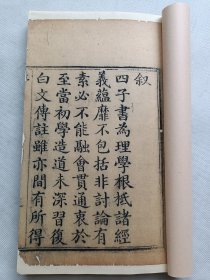 叙
四子書為理學根柢諸經
義蘊靡不包括非討論有
素必不能融會貫通衷於
至當初學造道未深習復
白文傳註雖亦間有所得